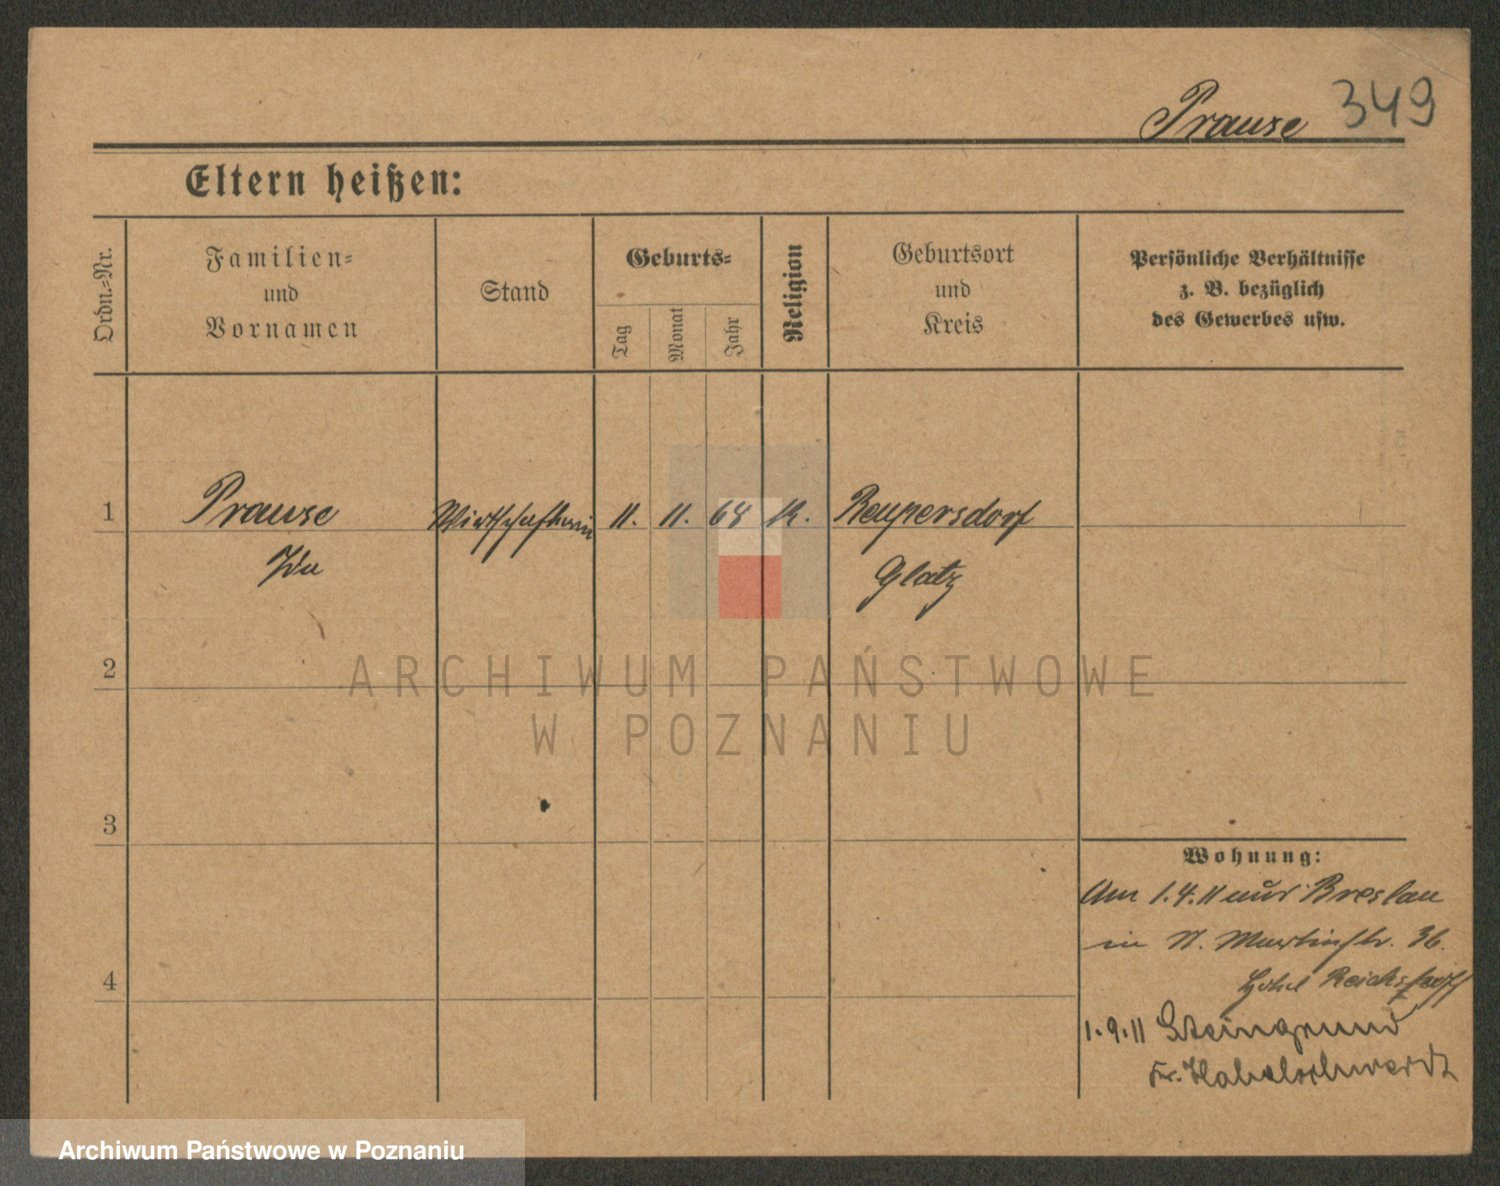 Prause 349
Eltern heißen:
Ordn.-Nr.
Familien-
und
Vornamen
Stand
Geburts-
Tag
Monat
Jahr
Religion
Geburtsort
und
Kreis
Persönliche Verhältnisse
z. B. bezüglich
des Gewerbes usw.
1 Prause 11. 11. 68 K. Reupersdorf
Ida
Glatz
2
3
4
Wohnung:
Am 1.4.11 aus Breslau
in St. Martinstr. 36.
Hotel
1.9.11 Steingrund
Kr. Habelschwerdt
ARCHIWUM PAŃSTWOWE
W POZNANIU
Archiwum Państwowe w Poznaniu